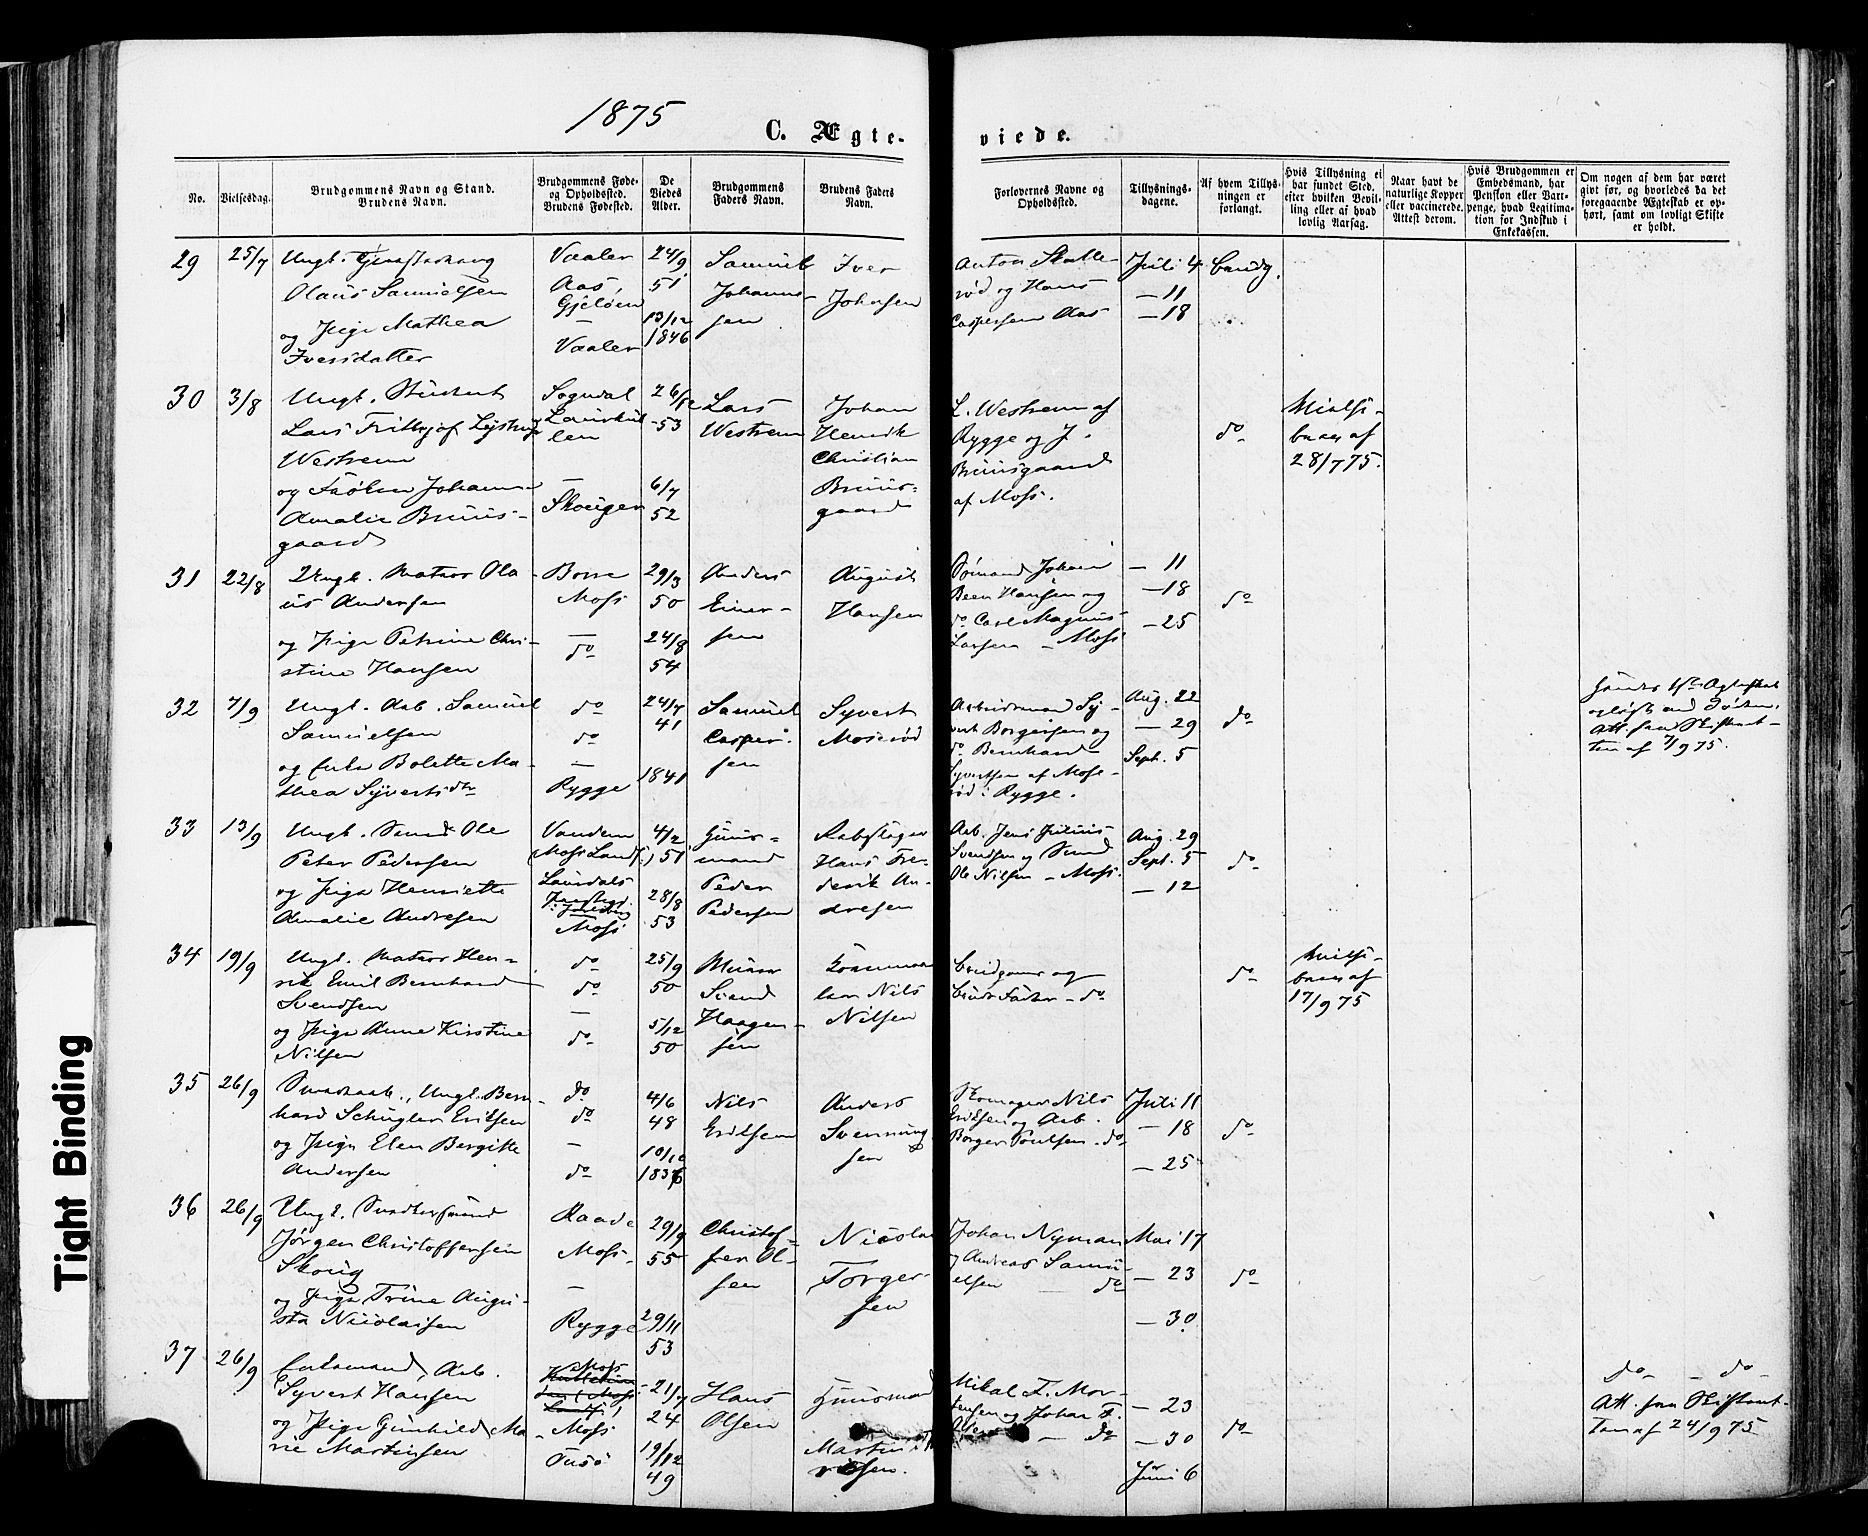 1875
C. Ægte-
viede.
No.
Vielsesdag.
Brudgommens Navn og Stand.
Brudens Navn.
Brudgommens Føde-
og Opholdssted.
Brudens Fødested.
De
Viedes
Alder.
Brudgommens
Faders Navn.
Brudens Faders
Navn.
Forlovernes Navne og
Opholdssted.
Tillysnings-
dagene.
Af hvem Tillys-
ningen er
forlangt.
Hvis Tillysning ei
har fundet Sted.
efter hvilken Bevil-
ling eller af hvad
lovlig Aarsag.
Naar havt de
naturlige Kopper
eller vaccinerede.
Attest derom.
Hvis Brudgommen er
Embedsmand, har
Pension eller Vart-
penge, hvad Legitima-
tion for Indskud i
Enkekassen.
Om nogen af dem har været
givt før, og hvorledes da det
foregaaende Ægteskab er op-
hørt, samt om lovligt Skifte
er holdt.
29
25/7
Ungk.
Olaus Samuelsen
og Pige Mathea
Iversdatter
Vaaler
Aas,
Gjeløen
—
Vaaler
24/9
51
13/12
1846
Samuel
Johanne-
sen
Iver
Johnsen
Anton Skalle-
rød og Hans
Caspersen Aas
Juli 4
— 11
— 18
Brudg.
30
3/8
Ungk. Student
Lars Frithjof Lystrup
Westrem
og Frøken Johanne
Amalie Bruus-
gaard
Sogndal
Laurkul
len
—
Skouger
26/12
53
6/7
52
Lars
Westrem
Johan
Henrik
Christian
Bruus-
gaard
L. Westrem af
Rygge og J.
Bruusgaard
af Moss.
do
brev af
28/7 75.
31
22/8
Ungk. Matros Ola-
us Andersen
og Pige Petrine Chri-
stine Hansen
Borre
Moss
—
do
29/3
50
24/8
54
Anders
Einer-
sen
August
Hansen
Sømand Johan
Been Hansen og
do Carl Magnus
Larsen - Moss
— 11
— 18
— 25
do
32
7/9
Ungk. Arb. Samuel
Samuelsen
og Enke Bolette Ma-
thea Syvertsdtr
do
do
—
Rygge
24/7
41
1841
Samuel
Casper-
sen
Syvert
Moserød
Arbeidsmand Sy-
vert Borgersen og
do Bernhard
Syvertsen af Mose-
rød i Rygge.
Aug. 22
— 29
Sept. 5
do
Hendes 1ste Ægteskab
opløst ved Døden.
Att. fra Skifteret-
ten af 7/9 75.
33
13/9
Ungk. Smed Ole
Peter Pedersen
og Pige Henriette
Amalie Andresen
Vandem
(Moss Lands.)
Moss
4/2
51
28/8
53
Huus-
mand
Peder
Pedersen
Rebslager
Hans Fre-
derik An-
dresen
Arb. Jens Julius
Svendsen og Smed
Ole Nilsen - Moss.
Aug. 29
Sept. 5
— 12
do
34
19/9
Ungk. Matros Hen-
rik Emil Bernhard
Svendsen
og Pige Anne Kirstine
Nilsen
do
do
—
do
25/9
50
5/12
50
Murer
Svend
Haagen-
sen
Nils
Nilsen
Brudgom og
Brudens Fader - do
do
brev af
17/9 75
35
26/9
Smedearb., Ungk. Bern-
hard Schugler Eriksen
og Pige Elen Bergitte
Andersen
do
do
—
do
4/6
48
10/12
1836
Nils
Eriksen
Anders
Svenning-
sen
Skomager Nils
Eriksen og Arb.
Borger Poulsen - do
Juli 11
— 18
— 25
do
36
26/9
Ungk.
Jørgen Christoffersen
Skoug
og Pige Trine Augu-
sta Nicolaisen
Raade
Moss
—
Rygge
29/9
55
29/11
53
Christof-
fer Ol-
sen
Nicolai
Torger-
sen
Johan Nyman
og Andreas Samu-
elsen — do
Mai 17
— 23
— 30
do
37
26/9
Enkemand, Arb.
Syvert Hansen
og Pige Gunhild Ma-
rie Martinsen
Moss
Moss
21/7
24
19/12
49
Hans
Olsen
Huusmand
Martin
Mikal F. Mor-
tensen og Johan F.
— do
— 23
— 30
Juni 6
do
do — do
Att. fra Skifteret-
ten af 24/9 75
Tight Binding